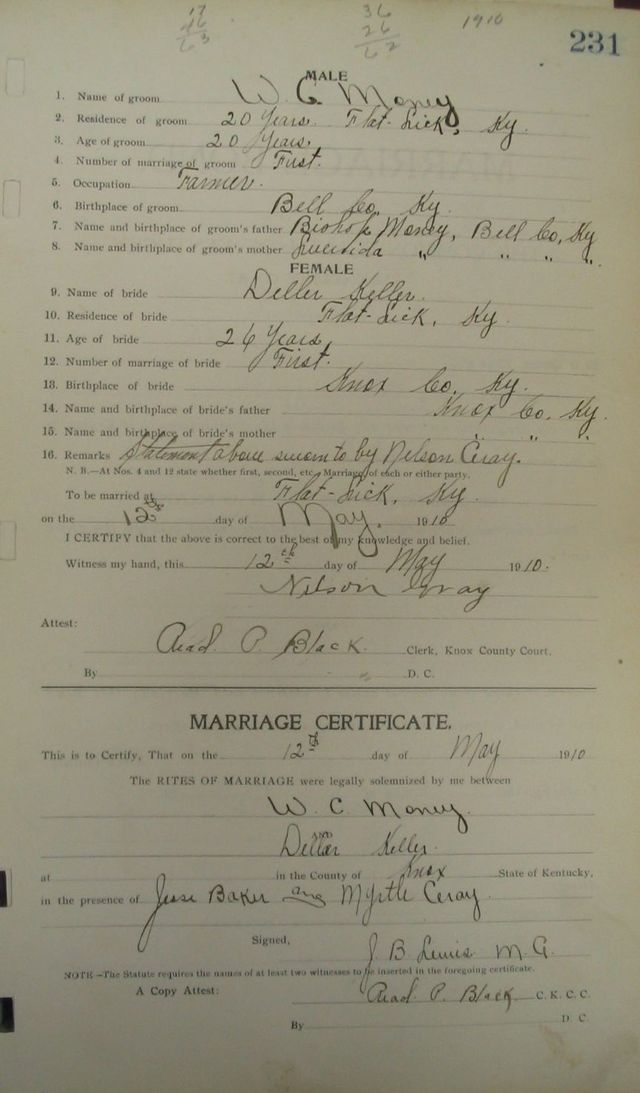 17 36 1910
46 26
63 62
231
MALE
1. Name of groom W. C. Money
2. Residence of groom 20 Years. Flat-Lick, Ky.
3. Age of groom 20 Years.
4. Number of marriage of groom First.
5. Occupation Farmer.
6. Birthplace of groom Bell Co. Ky.
7. Name and birthplace of groom's father Bishop Money, Bell Co, Ky
8. Name and birthplace of groom's mother " " " "
FEMALE
9. Name of bride Deller Keller.
10. Residence of bride Flat-Lick, Ky.
11. Age of bride 26 Years,
12. Number of marriage of bride First.
13. Birthplace of bride Knox Co. Ky.
14. Name and birthplace of bride's father Knox Co. Ky.
15. Name and birthplace of bride's mother " " "
16. Remarks Statement above sworn to by Nelson Gray.
N. B.—At Nos. 4 and 12 state whether first, second, etc. Marriage of each or either party.
To be married at Flat-Lick, Ky.
on the 12th day of May, 1910
I CERTIFY that the above is correct to the best of my knowledge and belief.
Witness my hand, this 12th day of May 1910.
Nelson Gray
Attest:
Read P. Black Clerk, Knox County Court.
By D. C.
MARRIAGE CERTIFICATE.
This is to Certify, That on the 12th day of May 1910
The RITES OF MARRIAGE were legally solemnized by me between
W. C. Money.
AND
Dellar Keller.
at in the County of Knox State of Kentucky,
in the presence of Jesse Baker and Myrtle Gray
Signed,
J. B. Lewis M. G.
NOTE—The Statute requires the names of at least two witnesses to be inserted in the foregoing certificate.
A Copy Attest: Read P. Black C. K. C. C.
By D. C.